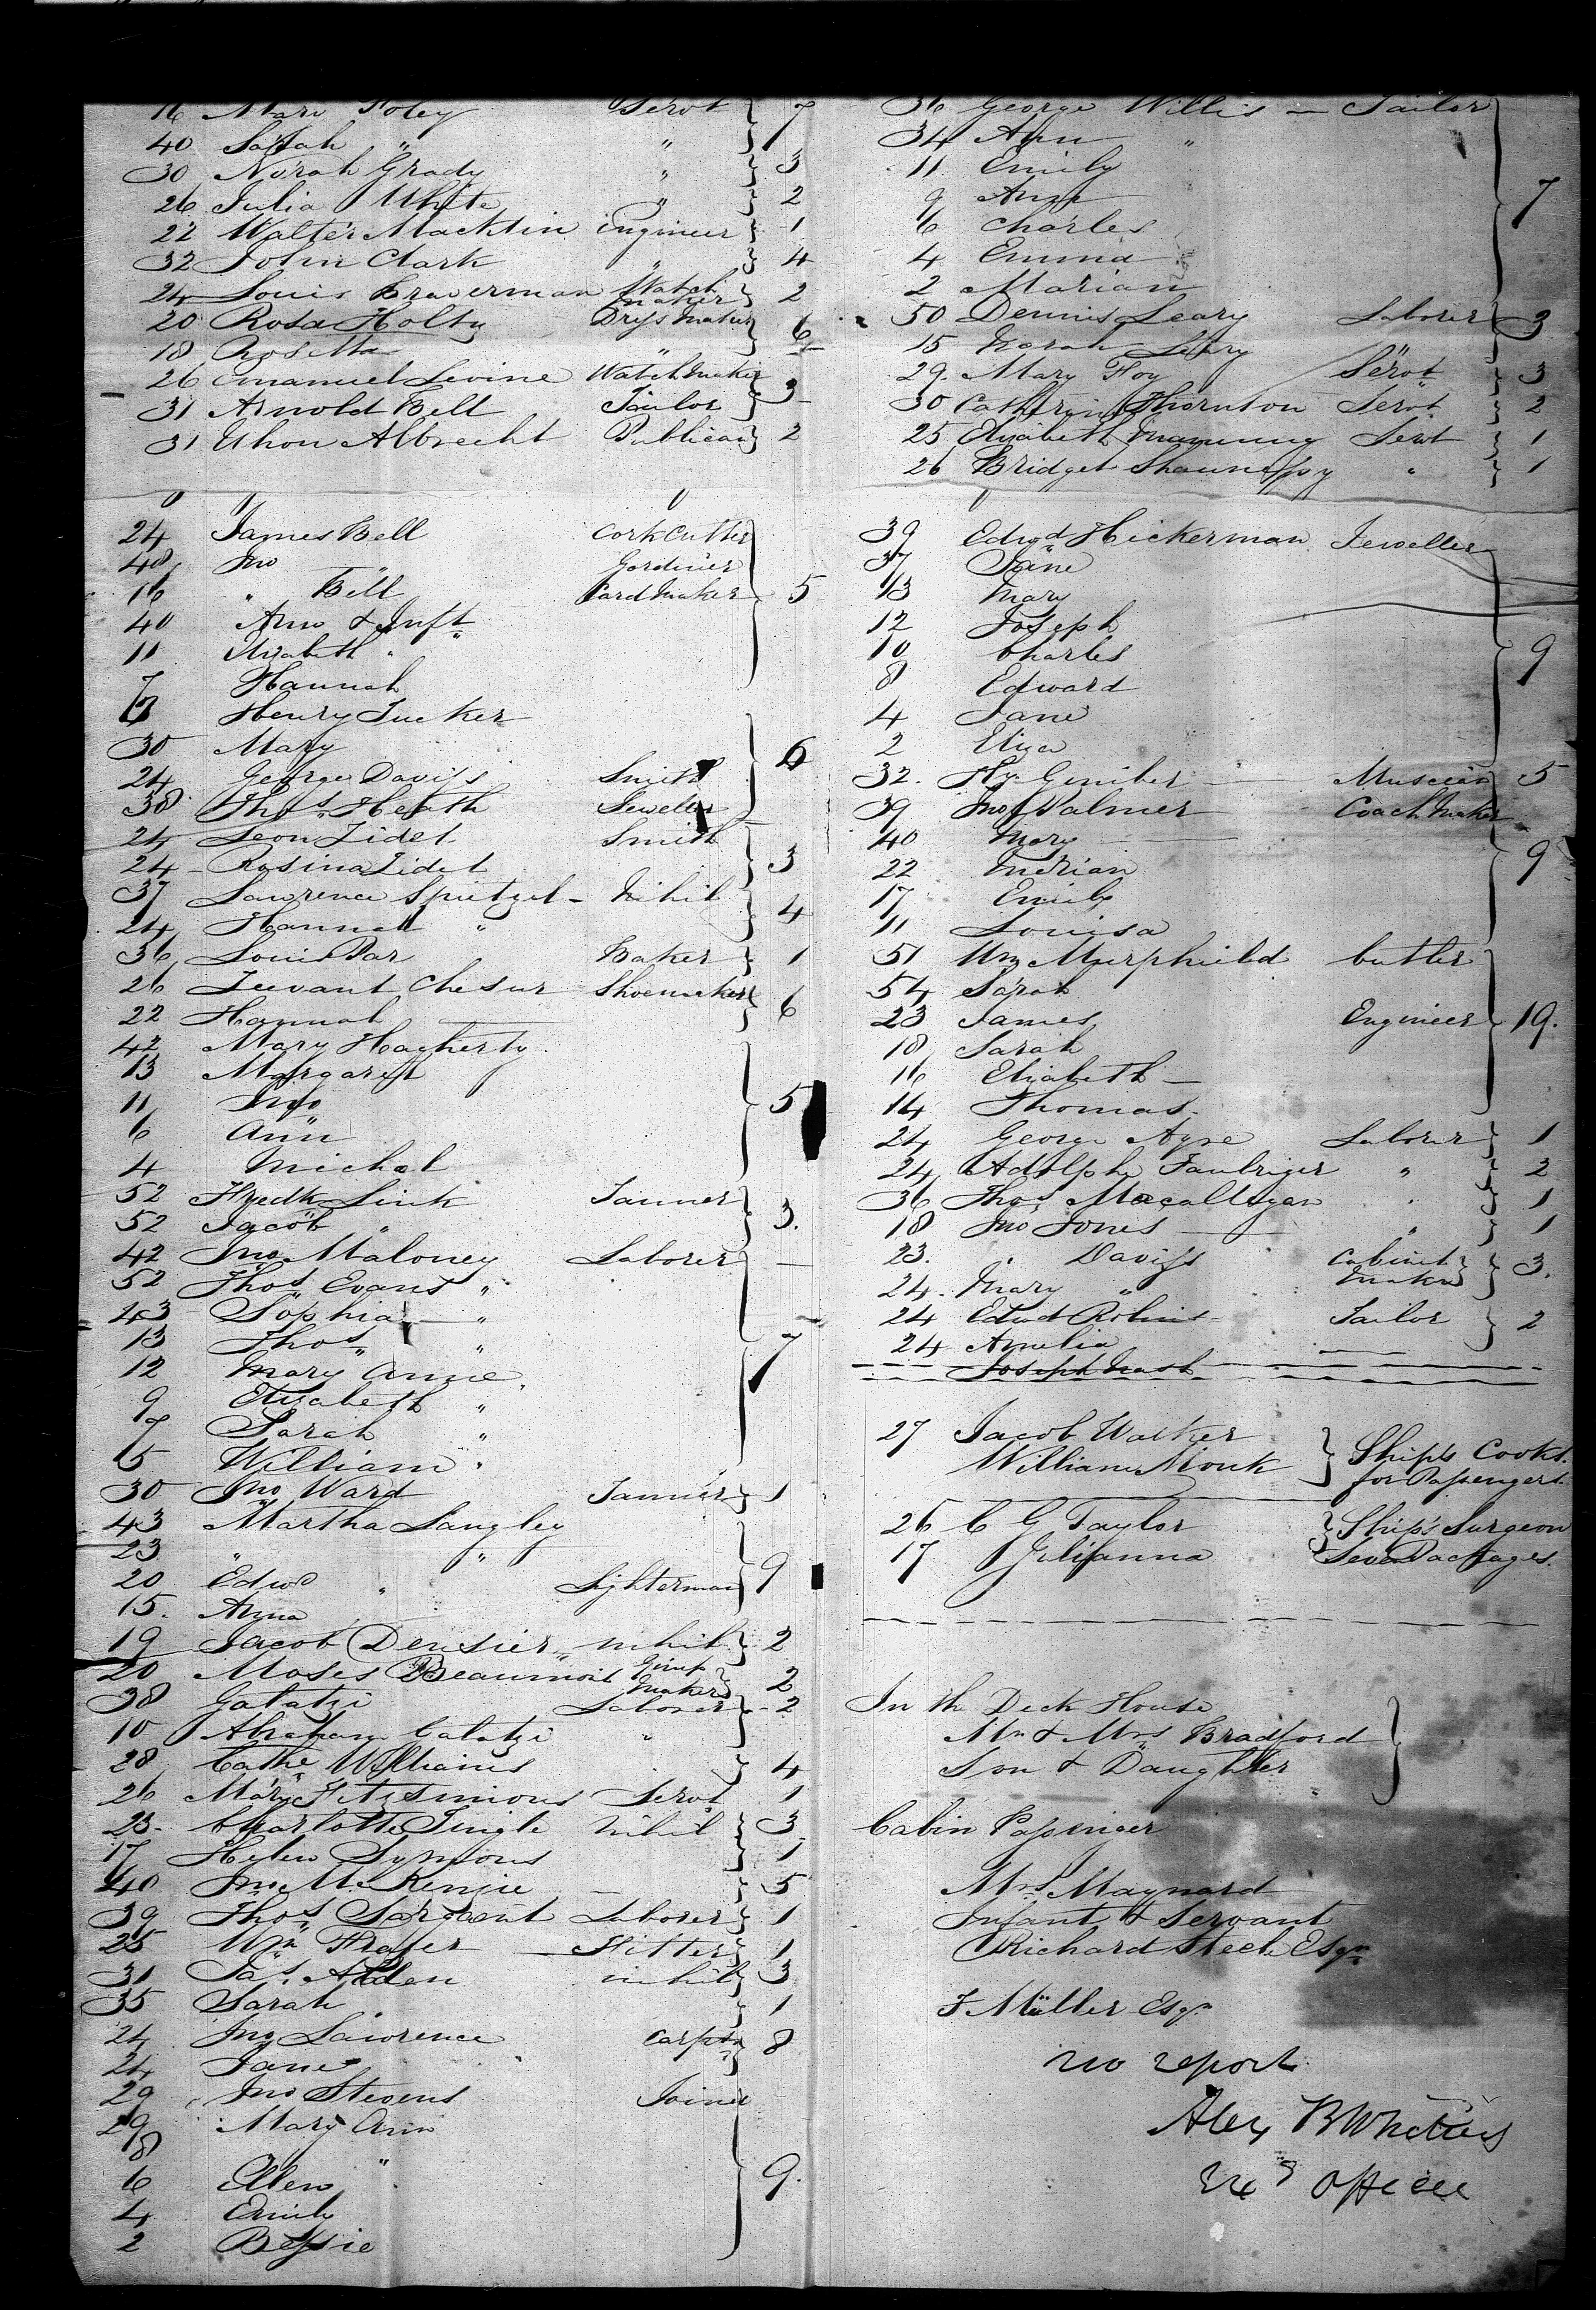 16 Mary Foley Servt 7
40 Sarah " "
30 Norah Grady " 3
26 Julia White " 2
22 Walter Macklin Engineer 1
32 John Clark " 4
24 Louis Braverman Watch maker 2
20 Rosa Holty Dressmaker 6
18 Rosetta "
26 Emanuel Levine Watchmaker 3
31 Arnold Bell Tailor
31 Albrecht Publican 2
24 James Bell Cork Cutter
48 Jno Gardiner
16 " Bell Card Maker 5
40 Ann & Inft "
11 Elizabeth "
7 Hannah
Henry Tucker
30 Mary 6
24 George Daviss Smith
38 Thos Heath Jeweller
24 Leon Lidet Smith
24 Rosina Lidet 3
37 Lawrence Spietzel - Nihil
24 Hannah " 4
36 Louis Par Baker 1
26 Chesur Shoemaker
22 Hannah 6
42 Mary Hagherty
13 Margaret
11 Jno 5
6 Ann
4 Michal
52 Fredk Link Tanner
52 Jacob " 3.
42 Jno Maloney Laborer
52 Thos Evans "
43 Sophia "
13 Thos " 7
12 Mary Annie
9 Elizabeth "
7 Sarah "
5 William "
30 Jno Ward Tanner 1
43 Martha Langley
23 " "
20 Edwd " Lighterman 9
15. Anna
19 Jacob Densier nihil 2
20 Moses Beaumont Gimp Maker 2
38 Galatzi Laborer 2
10 Abraham Calatzi "
28 Cathe Williams 4
26 Mary Fitzsimons Servt 1
23 Charlotte Tingle Nihil 3
17 Helen Symons 1
40 Jno McKenzie 5
39 Thos Sargeant Laborer 1
25 Wm Fraser Fitter 1
31 Jas Alden nihil 3
35 Sarah 1
24 Jno Lawrence Carptr 8
24 Jane "
29 Jno Stevens Joiner
29 Mary Ann
8 "
6 Ellen 9.
4 Emily
2 Bessie
36 George Willis - Tailor
34 Ann "
11 Emily
9 Ann 7
6 Charles
4 Emma
2 Marian
50 Dennis Leary Laborer 3
15 Norah Leary
29. Mary Foy Servt 3
30 Catherine Thornton Servt 2
25 Elizabeth Servt 1
26 Bridget Shaunessy " 1
39 Edwd Hickerman Jeweller
37 Jane
13 Mary
12 Joseph
10 Charles 9
8 Edward
4 Jane
2 Eliza
32. Hy Gimber Musician 5
39 Jno Walmer Coach Maker
40 Mary
22 9
17 Emily
11 Louisa
51 Wm Murphuild Cutler
54 Sarah
23 James Engineer 19.
18 Sarah
16 Elizabeth
14 Thomas
24 George Ayre Laborer 1
24 Adolph Faulriger " 2
36 Thos Macalligan " 1
18 Jno Jones " 1
23. " Daviss Cabinet Maker 3.
24. Mary "
24 Edwd Robins Tailor 2
24 Amelia
Joseph Nash
27 Jacob Walker
William Monk Ship's Cooks
for Passengers.
26 C G Taylor Ship's Surgeon
17 Julianna Seven Packages.
In the Deck House
Mr & Mrs Bradford
Son & Daughter
Cabin Passenger
Mrs Maynard
Infant & Servant
Richard Steele Esqr
F Müller Esqr
no report
Alex B
Officer